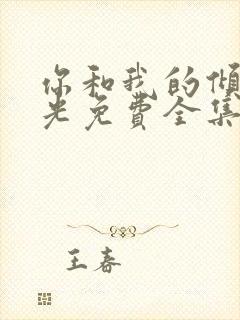 你和我的倾
光免费全集
王春